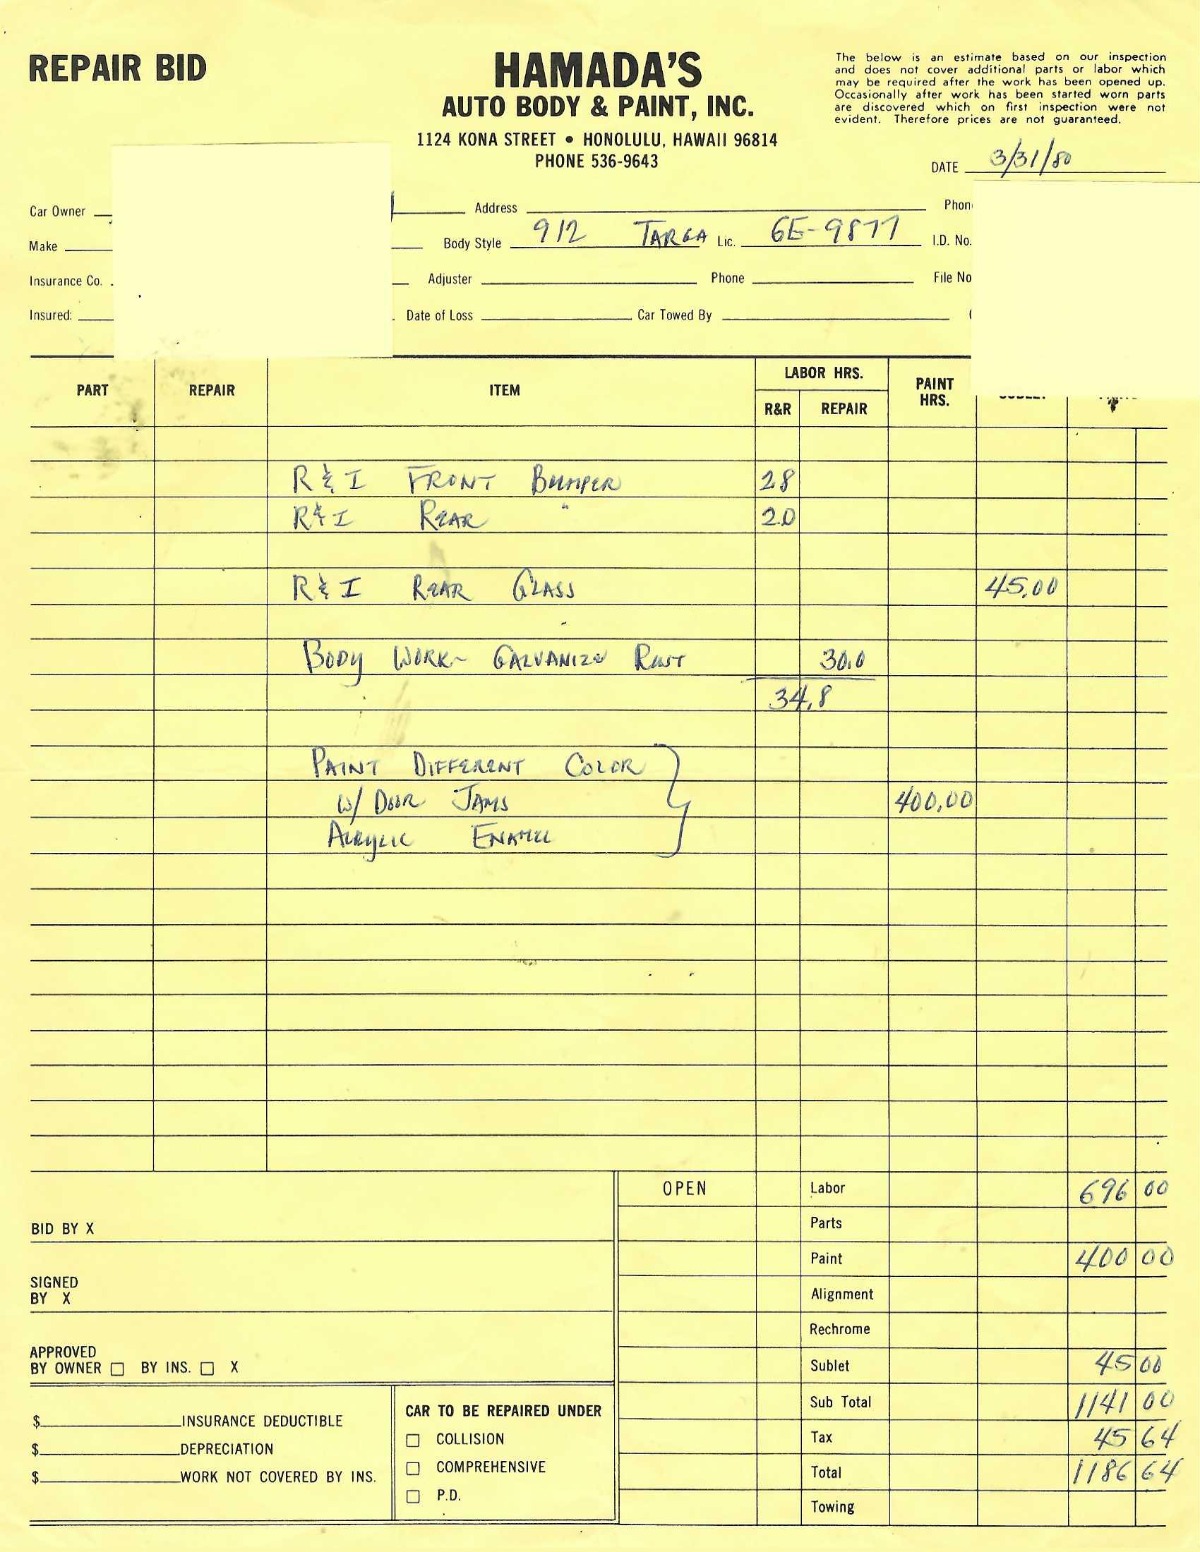 REPAIR BID
HAMADA'S
AUTO BODY & PAINT, INC.
1124 KONA STREET • HONOLULU, HAWAII 96814
PHONE 536-9643
The below is an estimate based on our inspection
and does not cover additional parts or labor which
may be required after the work has been opened up.
Occasionally after work has been started worn parts
are discovered which on first inspection were not
evident. Therefore prices are not guaranteed.
DATE 3/31/80
Car Owner Address Phon
Make Body Style 912 TARGA Lic. 6E-9877 I.D. No.
Insurance Co. Adjuster Phone File No
Insured: Date of Loss Car Towed By
PART REPAIR ITEM LABOR HRS. PAINT HRS.
R&R REPAIR
R & I FRONT BUMPER 28
R & I REAR " 20
R & I REAR GLASS 45.00
BODY WORK - GALVANIZE RUST 30.0
34.8
PAINT DIFFERENT COLOR
W/ DOOR JAMS 400.00
ACRYLIC ENAMEL
OPEN Labor 696 00
Parts
Paint 400 00
Alignment
Rechrome
Sublet 45 00
Sub Total 1141 00
Tax 45 64
Total 1186 64
Towing
BID BY X
SIGNED
BY X
APPROVED
BY OWNER □ BY INS. □ X
$ INSURANCE DEDUCTIBLE
$ DEPRECIATION
$ WORK NOT COVERED BY INS.
CAR TO BE REPAIRED UNDER
□ COLLISION
□ COMPREHENSIVE
□ P.D.